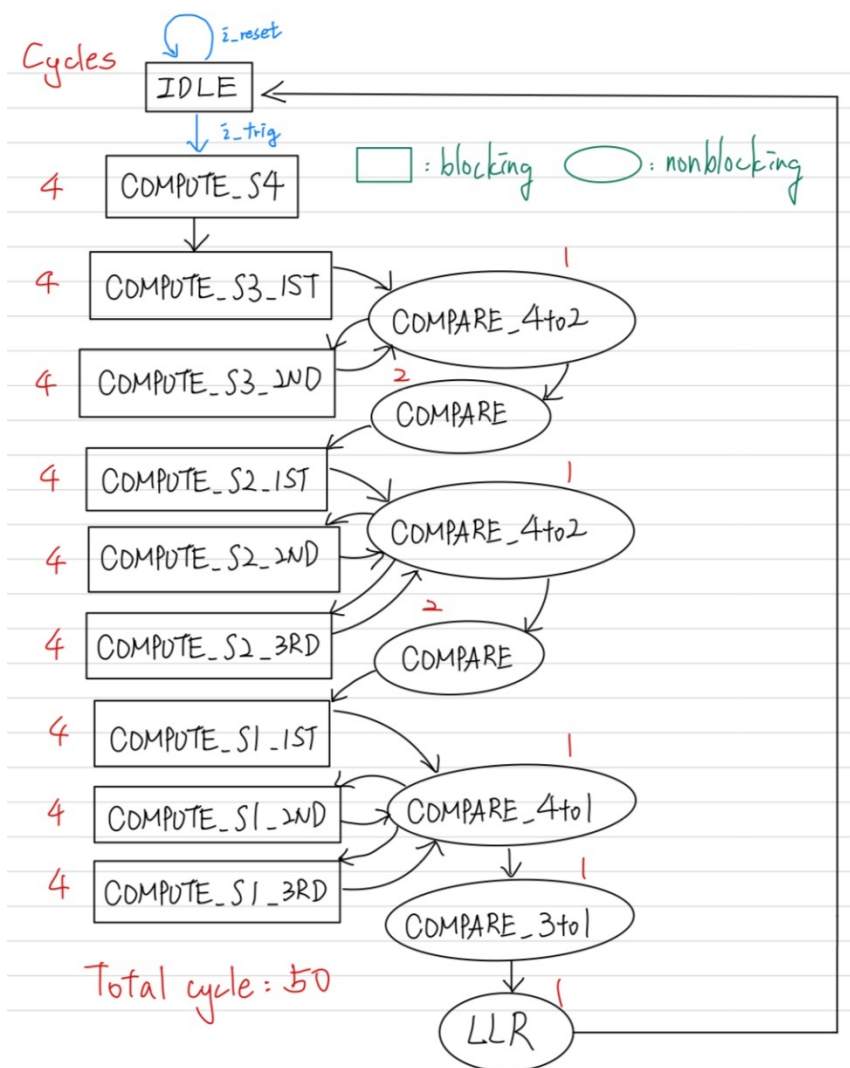 i_reset
Cycles
IDLE
i_trig
4 COMPUTE_S4
: blocking : nonblocking
1
4 COMPUTE_S3_1ST
COMPARE_4to2
4 COMPUTE_S3_2ND
2
COMPARE
4 COMPUTE_S2_1ST
1
COMPARE_4to2
4 COMPUTE_S2_2ND
2
4 COMPUTE_S2_3RD
COMPARE
4 COMPUTE_S1_1ST
1
4 COMPUTE_S1_2ND
COMPARE_4to1
4 COMPUTE_S1_3RD
1
COMPARE_3to1
Total cycle: 50
1
LLR